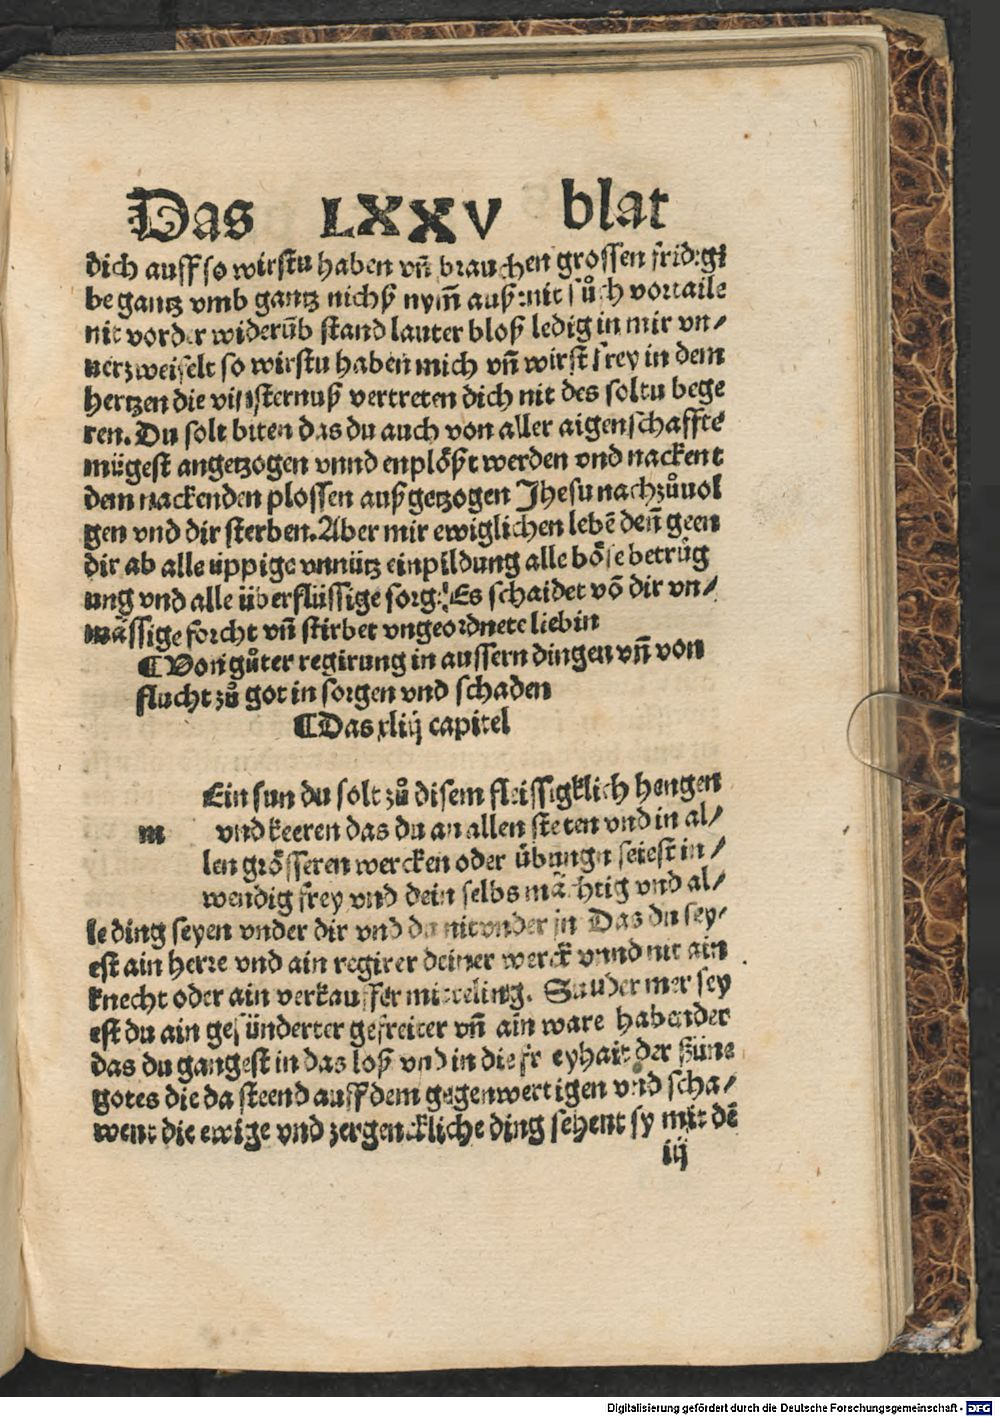 Das LXXV blat
dich auff so wirstu haben vn̄ brauchen grossen frid: gi
be gantz vmb gantz nichß nym̄ auß nit sůch vortaile
nit vorder widerūb stand lauter bloß ledig in mir vn⸗
uerzweifelt so wirstu haben mich vn̄ wirst frey in dem
hertzen die vinsternuß vertreten dich nit des soltu bege
ren. Du solt biten das du auch von aller aigenschafftē
mügest angetzogen vnnd enplößt werden vnd nackent
dem nackenden plossen außgetzogen Jhesu nachzůuol
gen vnd dir sterben. Aber mir ewiglichen lebē den̄ geen
dir ab alle üppige vnnütz einpildung alle böse betrüg
ung vnd alle überflüssige sorg. Es schaidet vō dir vn⸗
mässige forcht vn̄ stirbet vngeordnete liebin
¶ Von gůter regirung in aussern dingen vn̄ von
flucht zů got in sorgen vnd schaden
¶ Das xliij capitel
Ein sun du solt zů disem fleissigklich hengen
m vnd keeren das du an allen steten vnd in al⸗
len grösseren wercken oder übungn seiest in⸗
wendig frey vnd dein selbs mächtig vnd al⸗
le ding seyen vnder dir vnd du nit vnder jn Das du sey⸗
est ain herre vnd ain regirer deiner werck vnnd nit ain
knecht oder ain verkauffer mitteling. Sunder mer sey
est du ain gesünderter gefreiter vn̄ ain ware habender
das du gangest in das loß vnd in die freyhait der süne
gotes die da steend auff dem gegenwertigen vnd scha⸗
went die ewige vnd zergenckliche ding sehent sy mit dē
iij
Digitalisierung gefördert durch die Deutsche Forschungsgemeinschaft - DFG